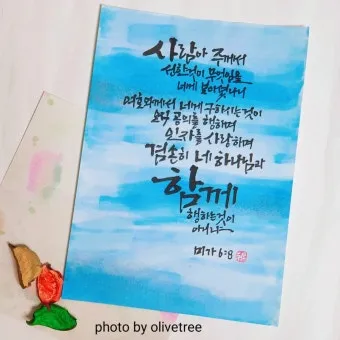 사람아 주께서
선한것이 무엇임을
네게 보이셨나니
여호와께서 네게 구하시는것이
오직 공의를 행하며
인자를 사랑하며
겸손히 네 하나님과
함께
행하는것이
아니냐
미가 6:8
photo by olivetree